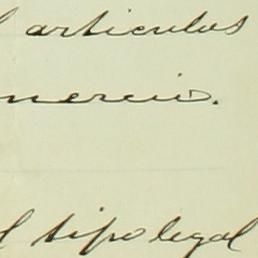 l articulos
mercio.
l tipo legal